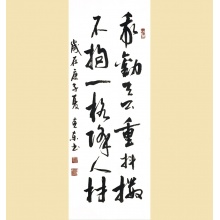 我劝天公重抖擞
不拘一格降人材
岁在庚子夏